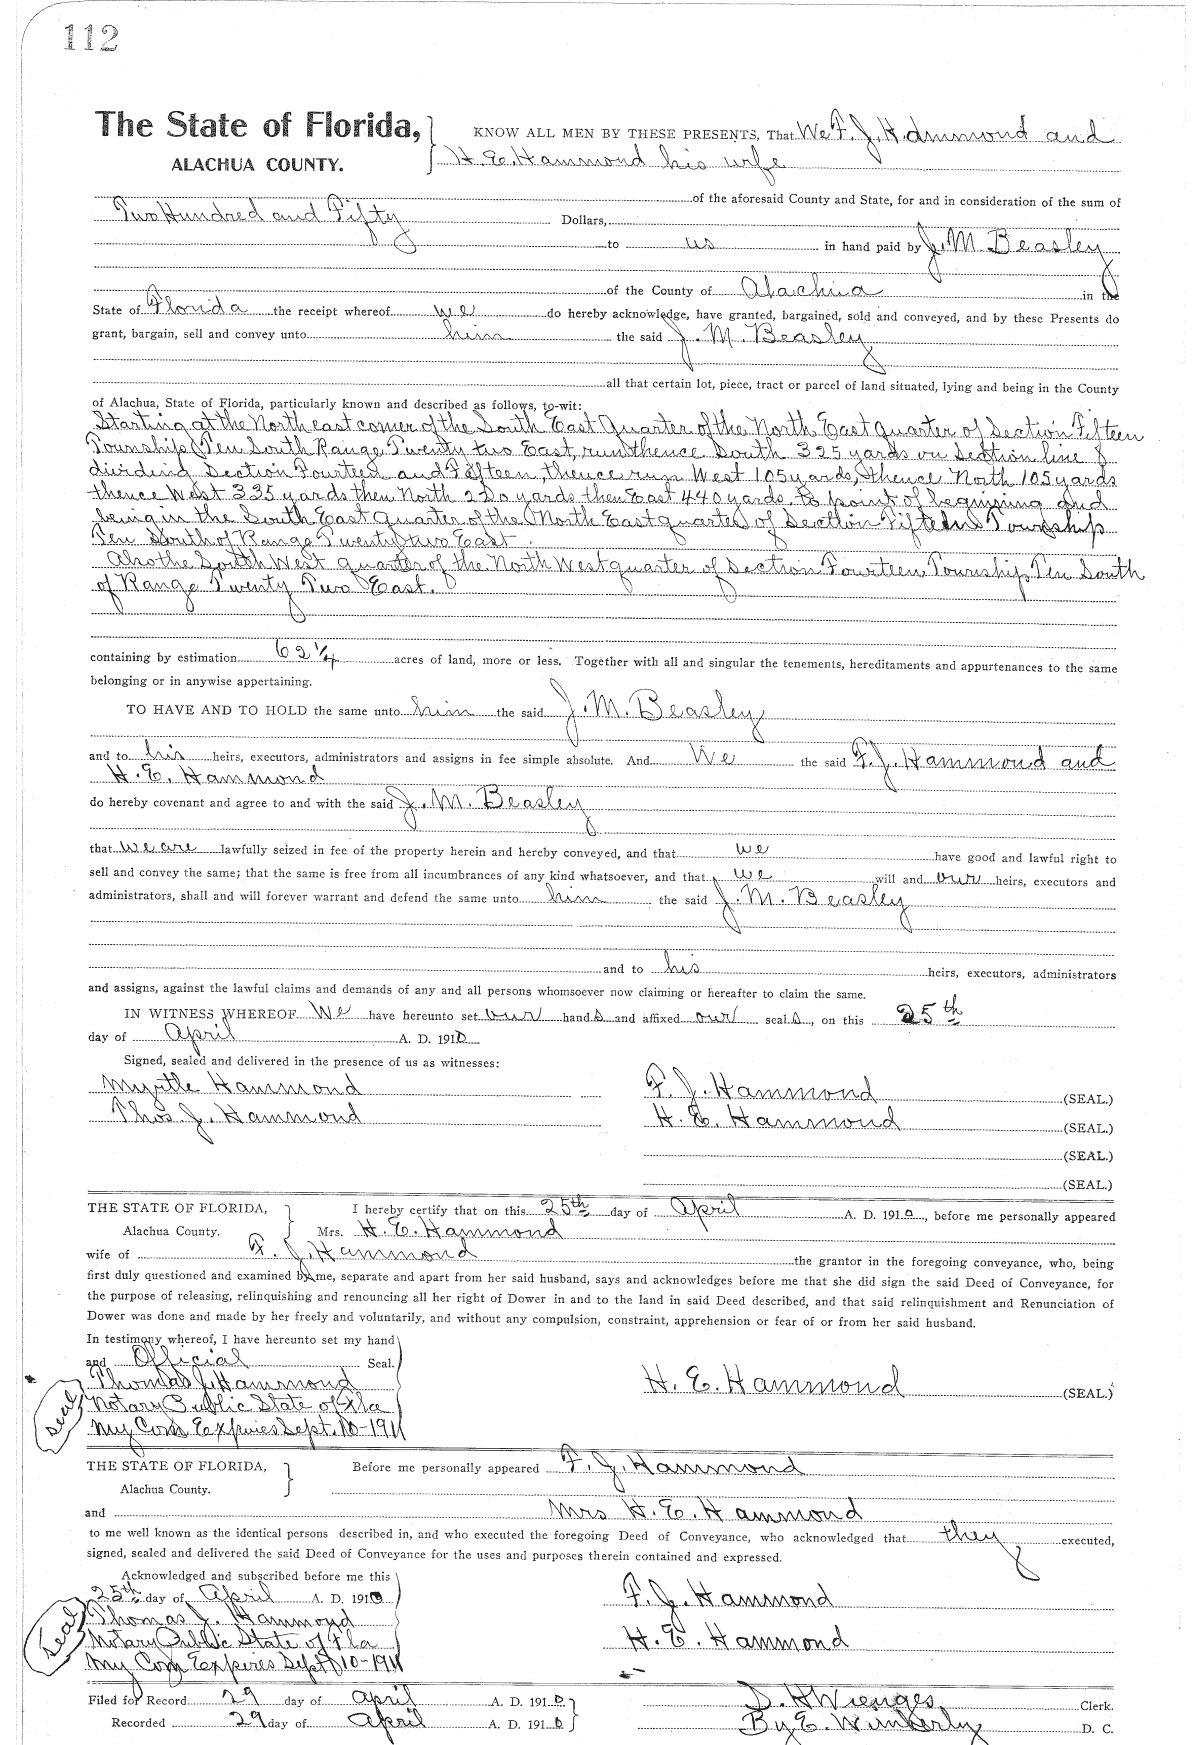 112
The State of Florida,
ALACHUA COUNTY.
KNOW ALL MEN BY THESE PRESENTS, That We F. J. Hammond and
H. E. Hammond his wife
of the aforesaid County and State, for and in consideration of the sum of
Two Hundred and Fifty Dollars,
to us in hand paid by J. M. Beasley
of the County of Alachua in the
State of Florida the receipt whereof we do hereby acknowledge, have granted, bargained, sold and conveyed, and by these Presents do
grant, bargain, sell and convey unto him the said J. M. Beasley
all that certain lot, piece, tract or parcel of land situated, lying and being in the County
of Alachua, State of Florida, particularly known and described as follows, to-wit:
Starting at the North east corner of the South East Quarter of the North East Quarter of Section Fifteen
Township Ten South Range Twenty two East, run thence South 325 yards on Section line
dividing Section Fourteen and Fifteen, thence run West 105 yards, thence North 105 yards
thence West 335 yards then North 220 yards then East 440 yards to point of begining and
being in the South East Quarter of the North East quarter of Section Fifteen Township
Ten South of Range Twenty two East.
Also the South West quarter of the North West quarter of Section Fourteen Township Ten South
of Range Twenty Two East.
containing by estimation 62 1/4 acres of land, more or less. Together with all and singular the tenements, hereditaments and appurtenances to the same
belonging or in anywise appertaining.
TO HAVE AND TO HOLD the same unto him the said J. M. Beasley
and to his heirs, executors, administrators and assigns in fee simple absolute. And We the said F. J. Hammond and
H. E. Hammond
do hereby covenant and agree to and with the said J. M. Beasley
that we are lawfully seized in fee of the property herein and hereby conveyed, and that we have good and lawful right to
sell and convey the same; that the same is free from all incumbrances of any kind whatsoever, and that we will and our heirs, executors and
administrators, shall and will forever warrant and defend the same unto him the said J. M. Beasley
and to his heirs, executors, administrators
and assigns, against the lawful claims and demands of any and all persons whomsoever now claiming or hereafter to claim the same.
IN WITNESS WHEREOF We have hereunto set our hands and affixed our seals, on this 25th
day of April A. D. 1910
Signed, sealed and delivered in the presence of us as witnesses:
Myrtle Hammond F. J. Hammond (SEAL.)
Thos J. Hammond H. E. Hammond (SEAL.)
(SEAL.)
(SEAL.)
THE STATE OF FLORIDA, I hereby certify that on this 25th day of April A. D. 1910, before me personally appeared
Alachua County. Mrs. H. E. Hammond
wife of F. J. Hammond the grantor in the foregoing conveyance, who, being
first duly questioned and examined by me, separate and apart from her said husband, says and acknowledges before me that she did sign the said Deed of Conveyance, for
the purpose of releasing, relinquishing and renouncing all her right of Dower in and to the land in said Deed described, and that said relinquishment and Renunciation of
Dower was done and made by her freely and voluntarily, and without any compulsion, constraint, apprehension or fear of or from her said husband.
In testimony whereof, I have hereunto set my hand
and Official Seal.
Thomas J. Hammond H. E. Hammond (SEAL.)
seal Notary Public State of Fla
My Com Expires Sept. 10-1911
THE STATE OF FLORIDA, Before me personally appeared F. J. Hammond
Alachua County.
and Mrs H. E. Hammond
to me well known as the identical persons described in, and who executed the foregoing Deed of Conveyance, who acknowledged that they executed,
signed, sealed and delivered the said Deed of Conveyance for the uses and purposes therein contained and expressed.
Acknowledged and subscribed before me this
25th day of April A. D. 1910 F. J. Hammond
Thomas J. Hammond
seal Notary Public State of Fla H. E. Hammond
My Com Expires Sept 10-1911
Filed for Record 29 day of April A. D. 1910 S. H. Wienges Clerk.
Recorded 29 day of April A. D. 1910 By E. Wimberly D. C.